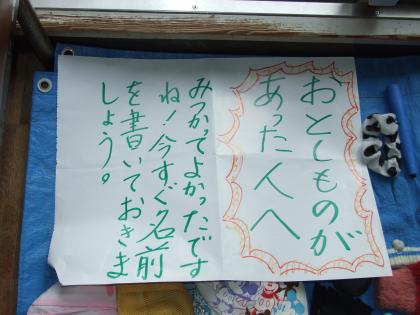 おとしものが
あった人へ
みつかってよかったです
ね！今すぐ名前
を書いておきま
しょう。